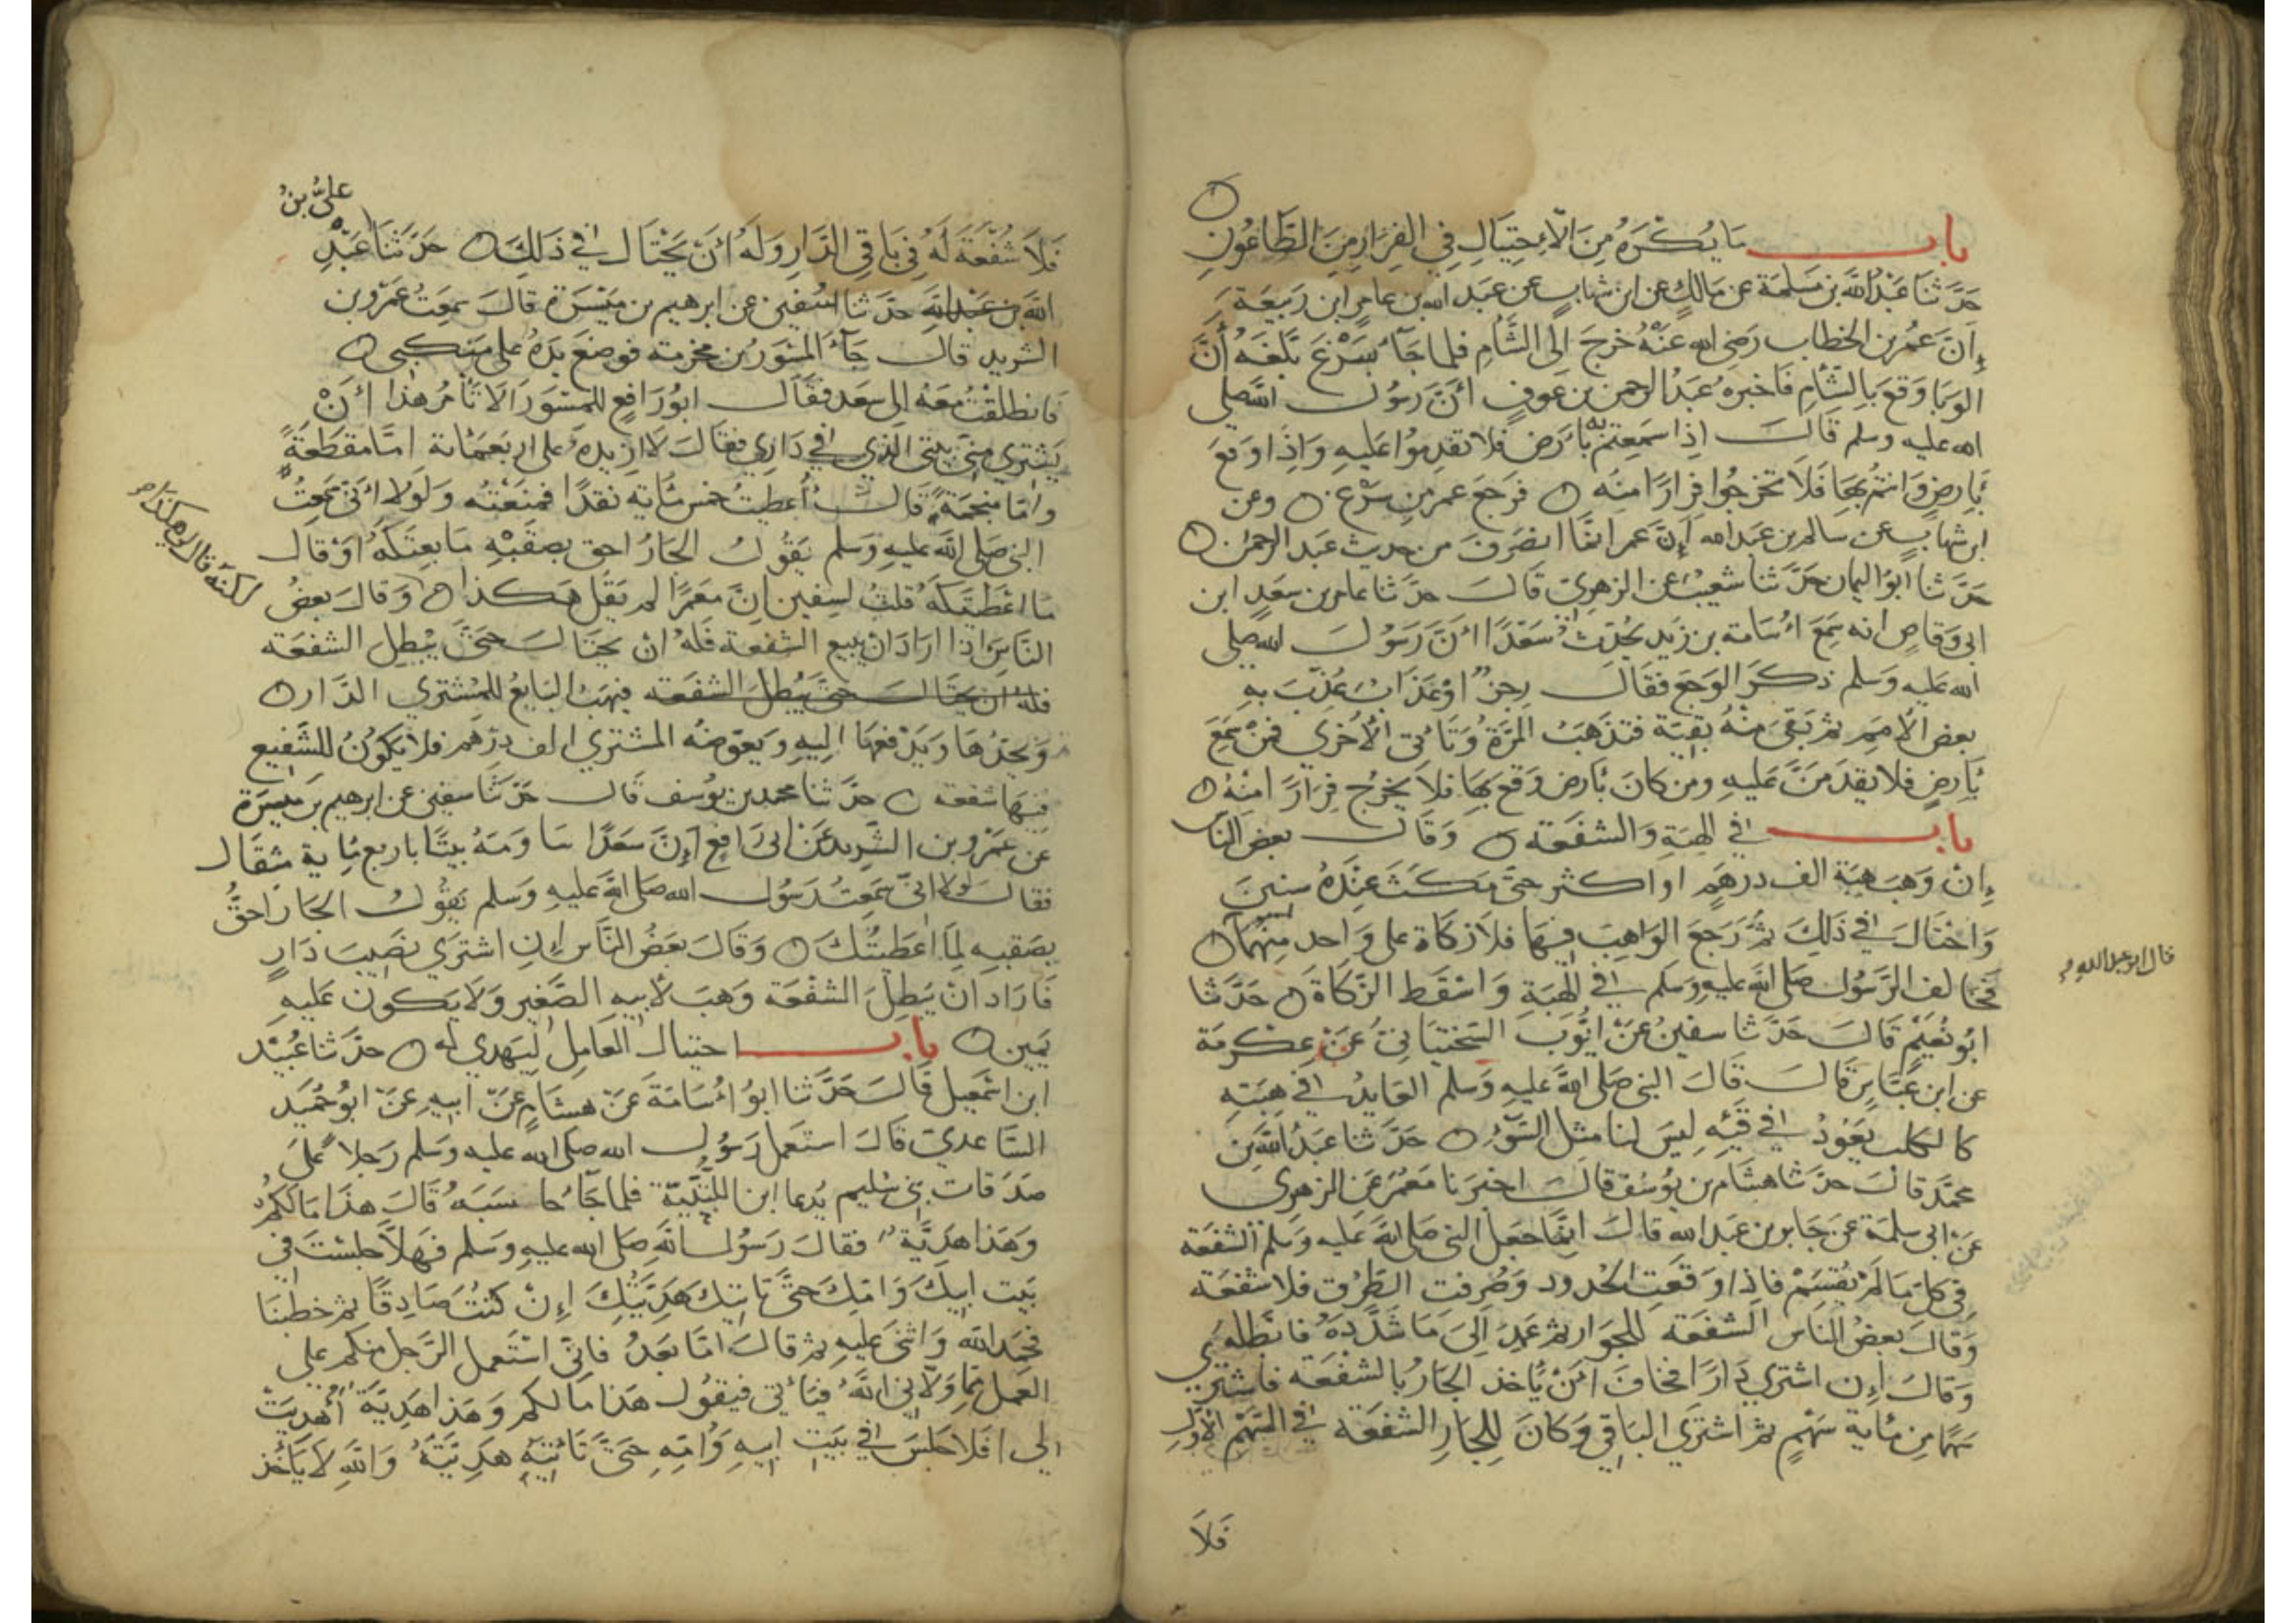 باب ما يكره من الاحتيال في الفرار من الطاعون
حدثنا عبد الله بن مسلمة عن مالك عن ابن شهاب عن عبد الله بن عامر ابن ربيعة
إن عمر بن الخطاب رضي الله عنه خرج الى الشأم فلما جآء بسرغ بلغه أن
الوبا وقع بالشأم فاخبره عبد الرحمن بن عوف أن رسول الله صلى
الله عليه وسلم قال اذا سمعتم به بأرض فلا تقدموا عليه واذا وقع
بأرض وانتم بها فلا تخرجوا فرارا منه فرجع عمر من سرغ وعن
ابن شهاب عن سالم بن عبد الله إن عمر انما انصرف من حديث عبد الرحمن
حدثنا ابو اليمان حدثنا شعيب عن الزهري قال حدثنا عامر بن سعد ابن
ابي وقاص انه سمع أسامة بن زيد يحدث سعدا أن رسول الله صلى
الله عليه وسلم ذكر الوجع فقال رجز او عذاب عذب به
بعض الأمم ثم بقي منه بقية فتذهب المرة وتأتي الأخرى فمن سمع
بأرض فلا يقدمن عليه ومن كان بأرض وقع بها فلا يخرج فرارا منه
باب في الهبة والشفعة وقال بعض الناس
إن وهب هبة الف درهم او اكثر حتى مكث عنده سنين
واحتال في ذلك ثم رجع الواهب فيها فلا زكاة على واحد منهما
قال ابو عبد الله
فخالف الرسول صلى الله عليه وسلم في الهبة واسقط الزكاة حدثنا
ابو نعيم قال حدثنا سفين عن ايوب السختياني عن عكرمة
عن ابن عباس قال قال النبي صلى الله عليه وسلم العايد في هبته
كالكلب يعود في قيئه ليس لنا مثل السوء حدثنا عبد الله بن
محمد قال حدثنا هشام بن يوسف قال اخبرنا معمر عن الزهري
عن ابي سلمة عن جابر بن عبد الله قال انما جعل النبي صلى الله عليه وسلم الشفعة
في كل ما لم يقسم فاذا وقعت الحدود وصرفت الطرق فلا شفعة
وقال بعض الناس الشفعة للجوار ثم عمد الى ما شدده فابطله
وقال إن اشترى دارا فخاف أن يأخذ الجار بالشفعة فاشترى
سهما من مأية سهم ثم اشترى الباقي وكان للجار الشفعة في السهم الأول
فلا
علي بن
فلا شفعة له في باقي الدار وله أن يحتال في ذلك حدثنا عبد
الله بن عبد الله حدثنا سفين عن ابرهيم بن ميسرة قال سمعت عمرو بن
الشريد قال جآء المسور بن مخرمة فوضع يده على منكبي
فانطلقت معه الى سعد فقال ابو رافع للمسور ألا تأمر هذا أن
يشتري مني بيتي الذي في داري فقال لا ازيده على اربعمائة اما مقطعة
واما منجمة قال أعطيت خمس مأية نقدا فمنعته ولولا أني سمعت
النبي صلى الله عليه وسلم يقول الجار احق بصقبه ما بعتكه او قال
ما اعطيتكه قلت لسفين ان معمرا لم يقل هكذا وقال بعض
لكنه قال لي هكذا
الناس اذا اراد ان يبيع الشفعة فله ان يحتال حتى يبطل الشفعة
فله ان يحتال حتى يبطل الشفعة فيهب البايع للمشتري الدار
ويحدها ويدفعها اليه ويعوضه المشتري الف درهم فلا يكون للشفيع
فيها شفعة حدثنا محمد بن يوسف قال حدثنا سفين عن ابرهيم بن ميسرة
عن عمرو بن الشريد عن ابي رافع إن سعدا ساومه بيتا باربع مأية مثقال
فقال لولا اني سمعت رسول الله صلى الله عليه وسلم يقول الجار احق
بصقبه لما اعطيتك وقال بعض الناس إن اشترى نصيب دار
فاراد ان يبطل الشفعة وهب لأبنه الصغير ولا يكون عليه
يمين باب احتيال العامل ليهدى له حدثنا عبيد
ابن اسمعيل قال حدثنا ابو أسامة عن هشام عن ابيه عن ابو حميد
الساعدي قال استعمل رسول الله صلى الله عليه وسلم رجلا على
صدقات بني سليم يدعا ابن اللتبية فلما جآء حاسبه قال هذا مالكم
وهذا هدية فقال رسول الله صلى الله عليه وسلم فهلا جلست في
بيت ابيك وامك حتى تاتيك هديتك إن كنت صادقا ثم خطبنا
فحمد الله واثنى عليه ثم قال اما بعد فاني استعمل الرجل منكم على
العمل مما ولاني الله فيأتي فيقول هذا مالكم وهذا هدية أهديت
لي افلا جلس في بيت ابيه وأمه حتى تأتيه هديته والله لا يأخذ